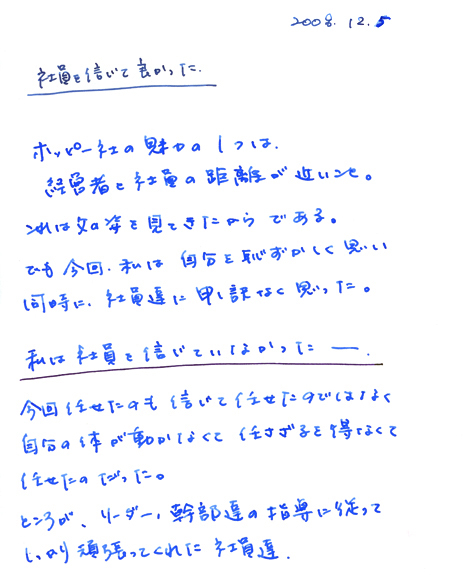 2008.12.5
社員を信じて良かった.
ホッピー社の魅力の1つは.
経営者と社員の距離が近いこと。
これは父の姿を見てきたからである。
でも今回.私は自分を恥ずかしく思い
同時に、社員達に申し訳なく思った。
私は社員を信じていなかった ー.
今回任せたのも信じて任せたのではなく
自分の体が動かなくて任さざるを得なくて
任せたのだった。
ところが、リーダー、幹部達の指導に従って
しっかり頑張ってくれた社員達.